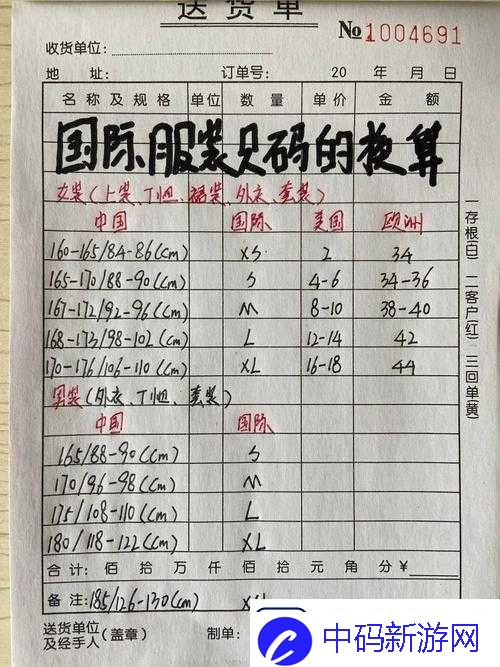 送货单
№1004691
收货单位:
地 址: 订单号: 20 年 月 日
名称及规格 单位 数量 单价 金额
国际服装尺码的换算
女装(上装、T恤、裙装、外衣、套装)
中国 国际 美国 欧洲
160-165/84-86(cm) XS 2 34
165-170/88-90(cm) S 4-6 34-36
167-172/92-96(cm) M 8-10 38-40
168-173/98-102(cm) L 12-14 42
170-176/106-110(cm) XL 16-18 44
男装(外衣、T恤、套装)
中国 国际
165/88-90(cm) S
170/96-98(cm) M
175/108-110(cm) L
180/118-122(cm) XL
合计: 佰 拾 万 仟 佰 拾 元 角 分 ¥
备注: 185/126-130(cm)
送货单位
及经手人(盖章) 制单:
一存根(白) 二客户(红) 三回单(黄)
中码新游网